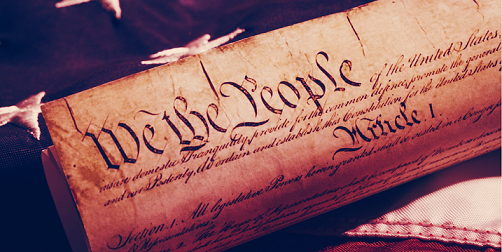 We the People of the United States,
insure domestic Tranquility, provide for the common defence, promote the general
and our Posterity, do ordain and establish this Constitution for the United States
Article I
Section. 1. All legislative Powers herein granted shall be vested in a Congress
Representatives.
Section. 2. The House of Representatives shall be composed of